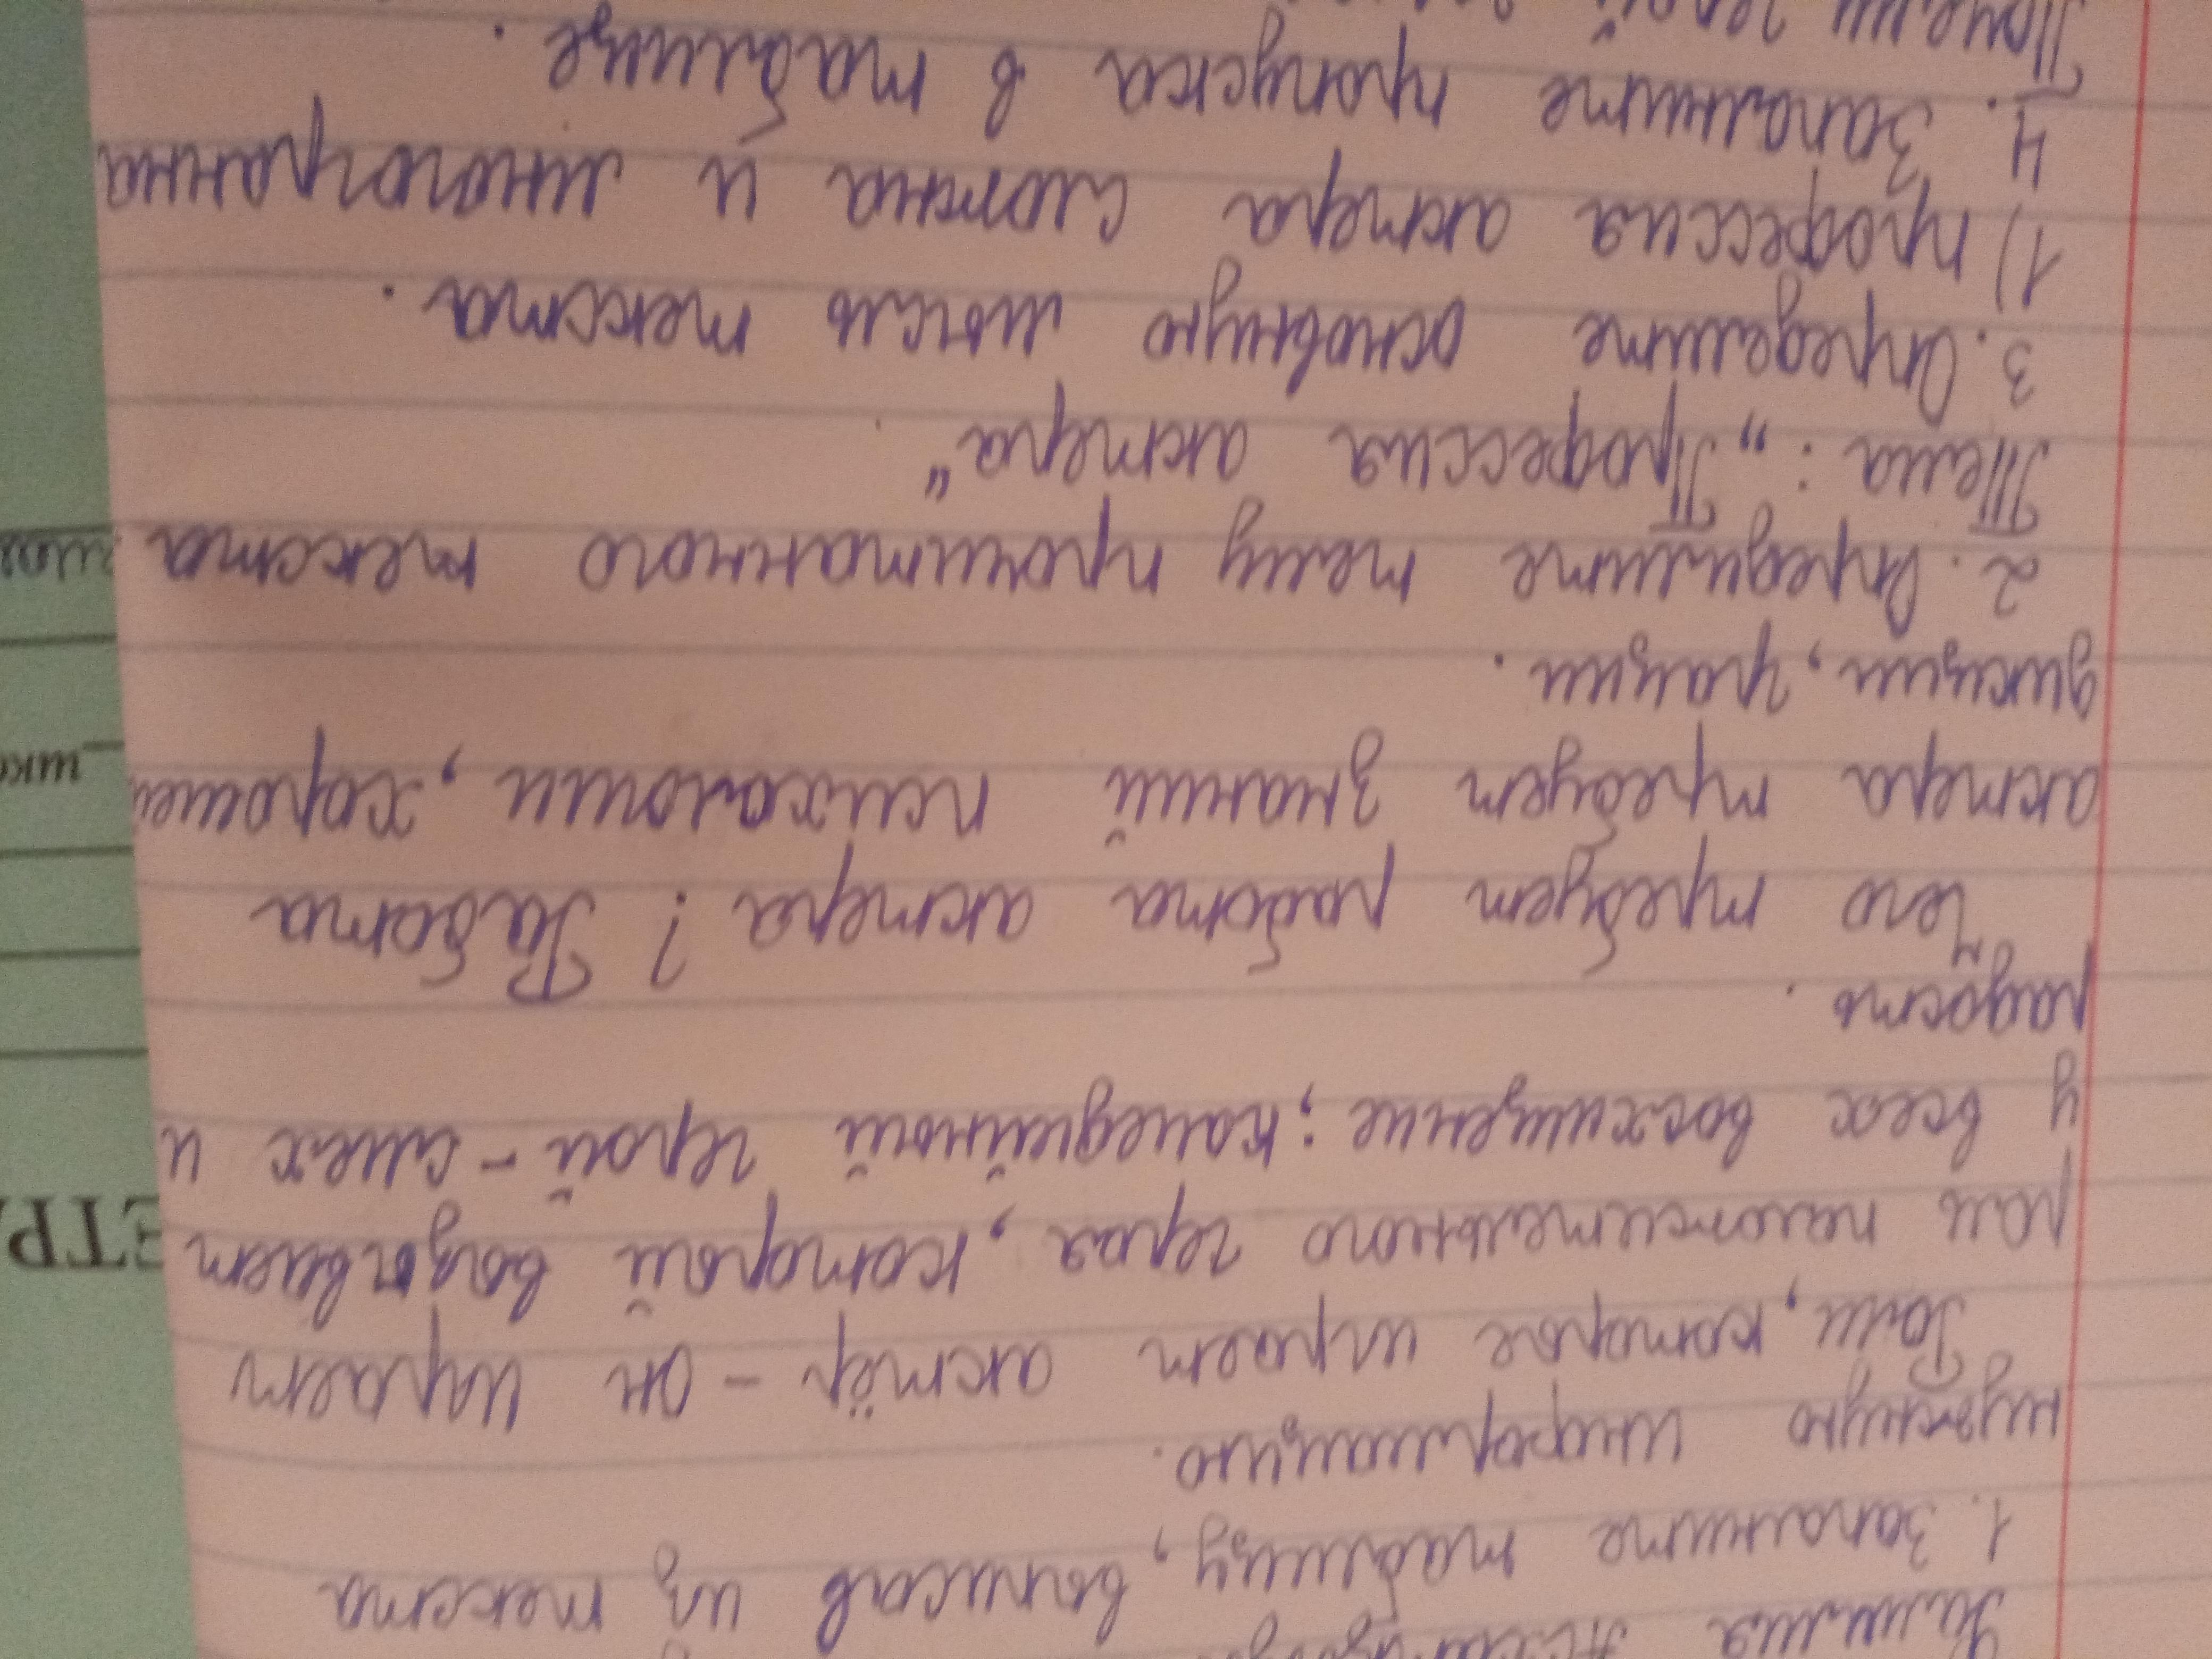 Фамилия
1. Заполните таблицу, выписав из текста
нужную информацию.
Роли, которые играет актёр - он играет
роли положительного героя, который вызывает
у всех восхищение; комедийный герой - смех и
радость.
Чего требует работа актера? Работа
актера требует знаний психологии, хорошей
дикции, грации.
2. Определите тему прочитанного текста
Тема: „Профессия актера"
3. Определите основную мысль текста.
1) профессия актера сложна и многогранна
4. Заполните пропуска в таблице.
Почему герой
ЕТР
шко